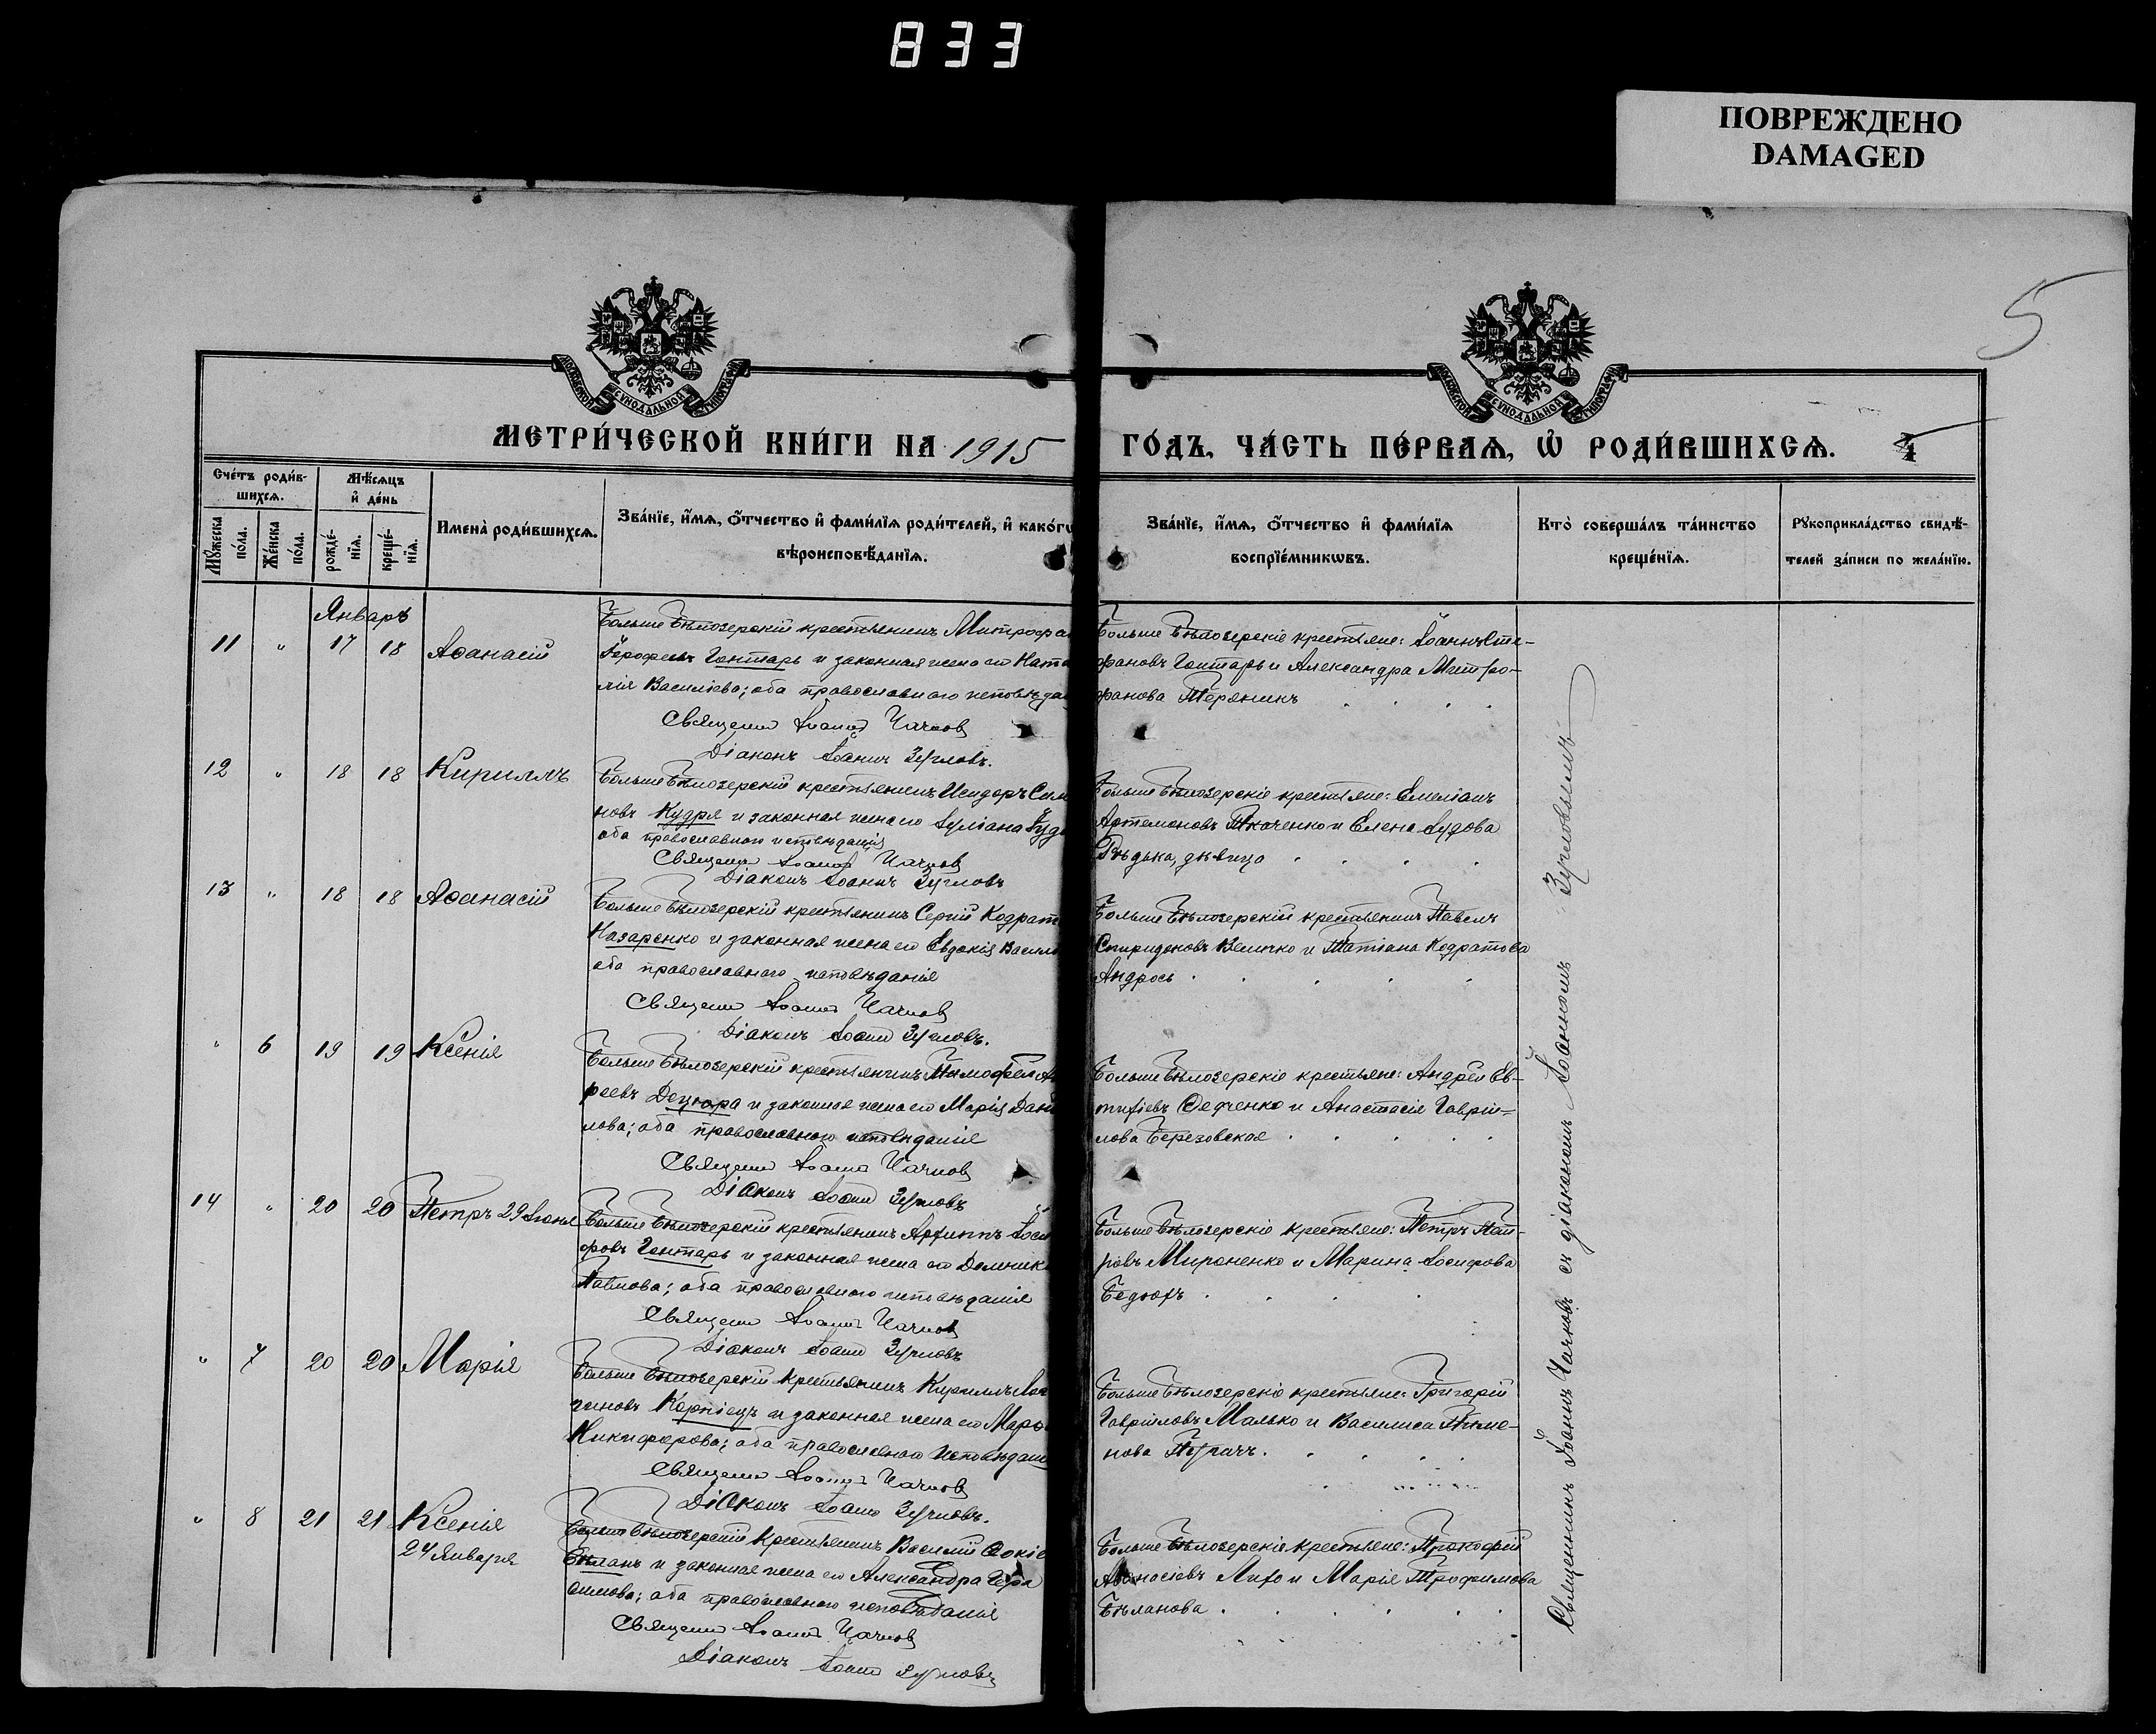 833
ПОВРЕЖДЕНО
DAMAGED
5
МЕТРИ́ЧЕСКОЙ КНИ́ГИ НА 1915 ГО́ДЪ, ЧА́СТЬ ПЕ́РВАѦ, Ѡ҆ РОДИ́ВШИХСѦ.
Сче́тъ роди́в-
шихсѧ.
Мѣ́сѧцъ
и҆ де́нь
Мꙋ́жеска
по́ла.
Же́нска
по́ла.
рожде́-
нїѧ.
креще́-
нїѧ.
Имена̀ роди́вшихсѧ.
Зва́нїе, и҆́мѧ, ѻ҆́тчество и҆ фами́лїѧ роди́телей, и҆ како́гѡ
вѣроисповѣ́данїѧ.
Зва́нїе, и҆́мѧ, ѻ҆́тчество и҆ фами́лїѧ
воспрїе́мникѡвъ.
Кто̀ соверша́лъ та́инство
креще́нїѧ.
Рꙋкоприкла́дство свидѣ́-
телей за́писи по жела́нїю.
Январь
11 " 17 18 Аѳанасій
Больше Бѣлозерскій крестьянинъ Митрофа
Іерофеевъ Гонтарь и законная жена его Ната
лія Василіева; оба православнаго исповѣда
Священ Іоаннъ Чачковъ
Діаконъ Іоаннъ Зугловъ.
Больше Бѣлозерскіе крестьяне: Іоаннъ Сте-
фановъ Гонтарь и Александра Митро-
фанова Терянникъ
12 " 18 18 Кириллъ
Больше Бѣлозерскій крестьянинъ Исидоръ Сим
новъ Кудря и законная жена его Іуліана Іуд
оба православнаго исповѣданія
Священ Іоаннъ Чачковъ
Діаконъ Іоаннъ Зугловъ
Больше Бѣлозерскіе крестьяне: Емеліанъ
Артемоновъ Ткаченко и Елена Іудова
Гнѣдька, дѣвица
13 " 18 18 Аѳанасій
Больше Бѣлозерскій крестьянинъ Сергій Кодрат
Назаренко и законная жена его Евдокія Васил
оба православнаго исповѣданія
Священ Іоаннъ Чачковъ
Діаконъ Іоаннъ Зугловъ.
Больше Бѣлозерскій крестьянинъ Павелъ
Спиридоновъ Величко и Татіана Кодратова
Андрось
" 6 19 19 Ксенія
Больше Бѣлозерскій крестьянинъ Тимофей Ан
реевъ Децюра и законная жена его Марія Дани
лова; оба православнаго исповѣданія
Священ Іоаннъ Чачковъ
Діаконъ Іоаннъ Зугловъ
Больше Бѣлозерскіе крестьяне: Андрей Ев-
тифіевъ Федченко и Анастасія Гавріи-
лова Березовская
14 " 20 20 Петръ 29 Іюня
Больше Бѣлозерскій крестьянинъ Архиппъ Іоси
фовъ Гонтарь и законная жена его Домник
Павлова; оба православнаго исповѣданія
Священ Іоаннъ Чачковъ
Діаконъ Іоаннъ Зугловъ
Больше Бѣлозерскіе крестьяне: Петръ
Мироненко и Марина Іосифова
" 7 20 20 Марія
Больше Бѣлозерскій крестьянинъ Кириллъ Лон
гиновъ Карпіецъ и законная жена его Марѳ
Никифорова; оба православнаго исповѣдан
Священ Іоаннъ Чачковъ
Діаконъ Іоаннъ Зугловъ.
Больше Бѣлозерскіе крестьяне: Григорій
Гавріиловъ Малько и Василиса Пиме-
нова
" 8 21 21 Ксенія
24 Января
Больше Бѣлозерскій крестьянинъ Василій Фокіе
Бѣланъ и законная жена его Александра Гера
симова; оба православнаго исповѣданія
Священ Іоаннъ Чачковъ
Діаконъ Іоаннъ Зугловъ
Больше Бѣлозерскіе крестьяне: Прокофій
Аѳанасіевъ и Марія Трофимова
Бѣланова
Священникъ Іоаннъ Чачковъ съ діакономъ Іоанномъ Зугловымъ